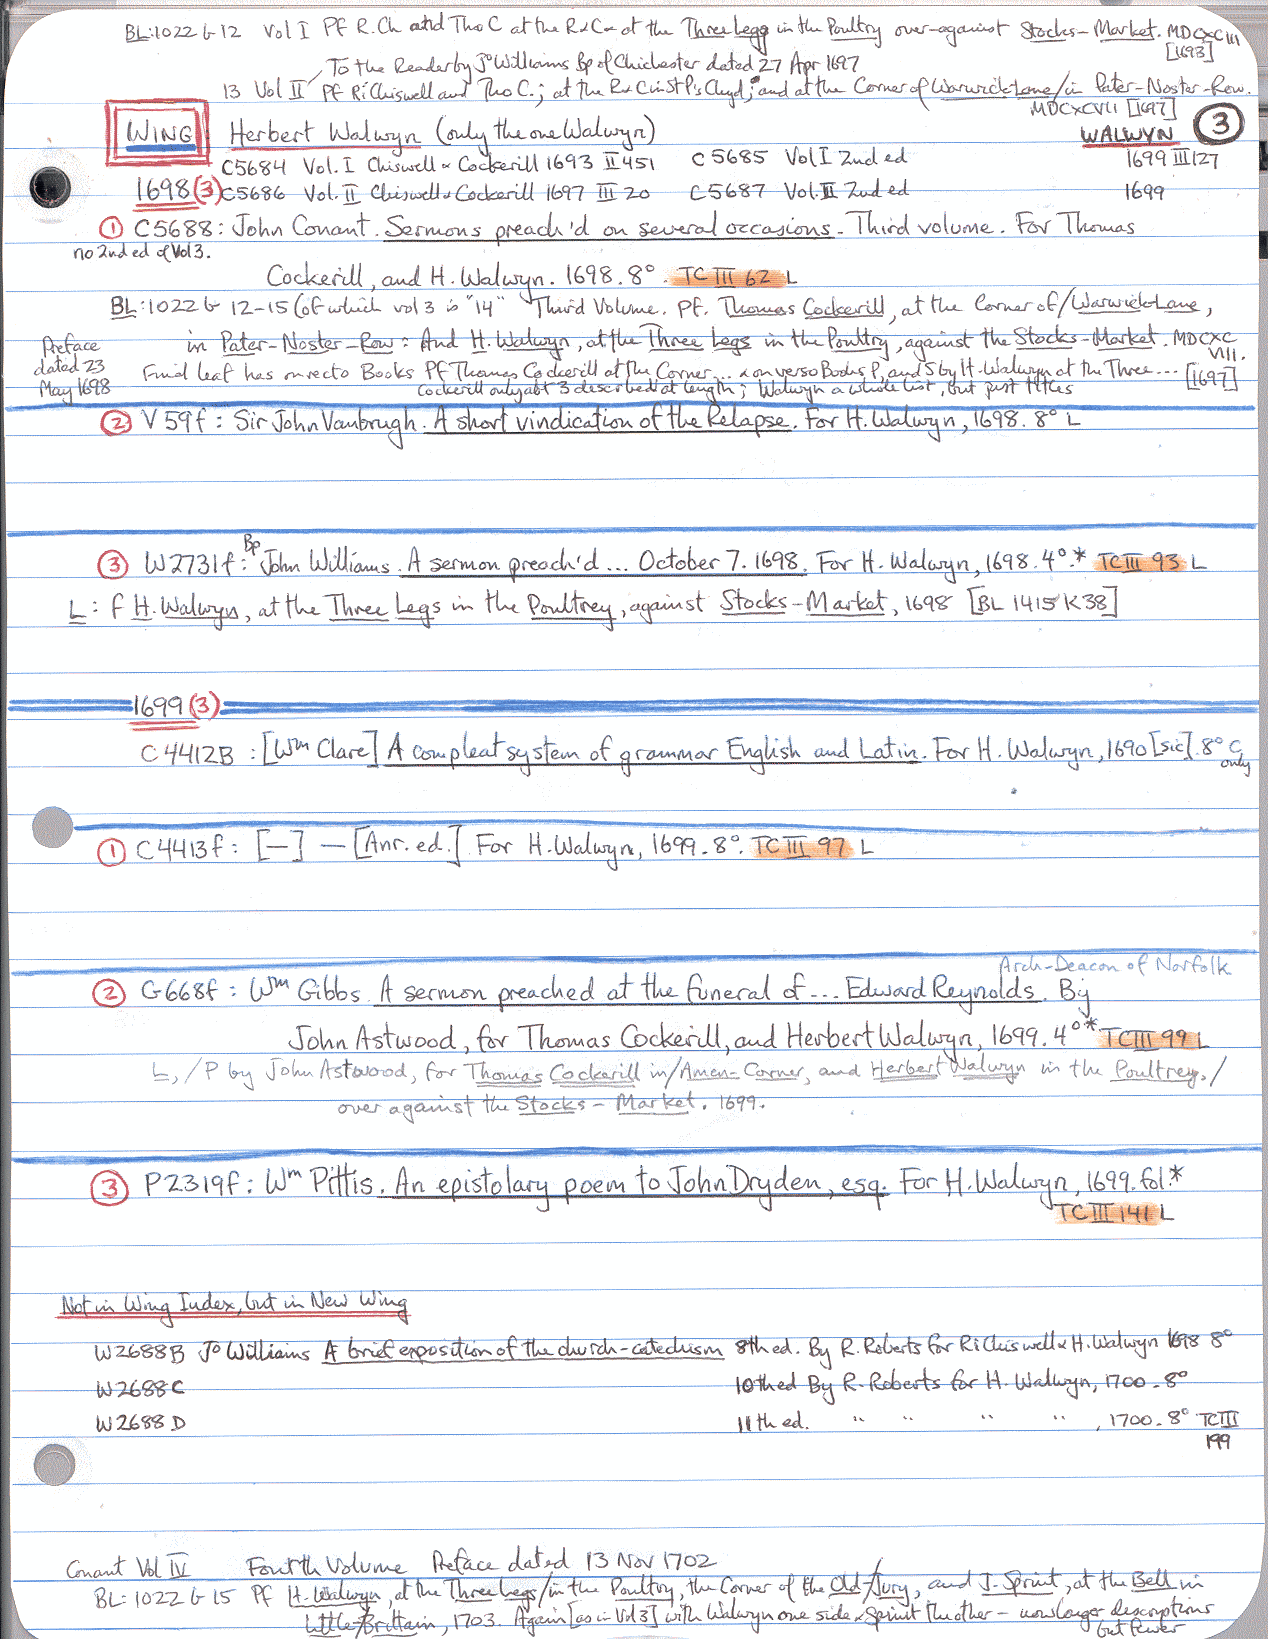 BL:1022 G 12 Vol I Pf R.Ch and Tho C at the R&C at the Three Legg in the Poultry over-against Stocks-Market. MDCXCIII
[1693]
To the Reader by Jo Williams Bp of Chichester dated 27 Apr 1697
13 Vol II Pf Ri Chiswell and Tho C.; at the R&C in St P's Chyd; and at the Corner of Warwick Lane/in Pater-Noster-Row.
MDCXCVII [1697]
WING Herbert Walwyn (only the one Walwyn) WALWYN 3
C5684 Vol. I Chiswell & Cockerill 1693 II 451 C5685 Vol I 2nd ed 1699 III 127
1698 (3) C5686 Vol. II Chiswell & Cockerill 1697 III 20 C5687 Vol. II 2nd ed 1699
1 C5688: John Conant. Sermons preach'd on several occasions. Third volume. For Thomas
no 2nd ed of Vol 3.
Cockerill, and H. Walwyn. 1698. 8°. TC III 62 L
BL:1022 G 12-15 (of which vol 3 is "14" Third Volume. Pf. Thomas Cockerill, at the Corner of/Warwick-Lane,
Preface dated 23 May 1698
in Pater-Noster-Row: And H. Walwyn, at the Three Legs in the Poultry, against the Stocks-Market. MDCXC
VIII.
Final leaf has on recto Books Pf Thomas Cockerill at the Corner... & on verso Books P, and S by H. Walwyn at the Three... [1697]
Cockerill only abt 3 described at length; Walwyn a whole list, but just titles
2 V59f: Sir John Vanbrugh. A short vindication of the Relapse. For H. Walwyn, 1698. 8° L
Bp
3 W2731f: John Williams. A sermon preach'd... October 7. 1698. For H. Walwyn, 1698. 4°.* TC III 93 L
L: f H. Walwyn, at the Three Legs in the Poultrey, against Stocks-Market, 1698 [BL 1415 K38]
1699 (3)
C4412B: [Wm Clare] A compleat system of grammar English and Latin. For H. Walwyn, 1690 [sic]. 8° C
only
1 C4413f: [-] - [Anr. ed.] For H. Walwyn, 1699. 8°. TC III 97 L
Arch-Deacon of Norfolk
2 G668f: Wm Gibbs A sermon preached at the funeral of... Edward Reynolds. By
John Astwood, for Thomas Cockerill, and Herbert Walwyn, 1699. 4°* TC III 99 L
L, /P by John Astwood, for Thomas Cockerill in/Amen-Corner, and Herbert Walwyn in the Poultrey,/
over against the Stocks-Market. 1699.
3 P2319f: Wm Pittis. An epistolary poem to John Dryden, esq. For H. Walwyn, 1699. fol.*
TC III 141 L
Not in Wing Index, but in New Wing
W2688B Jo Williams A brief exposition of the church-catechism 8th ed. By R. Roberts for Ri Chiswell & H. Walwyn 1698 8°
W2688C 10th ed By R. Roberts for H. Walwyn, 1700. 8°
W2688D 11th ed. " " " " , 1700. 8° TC III
199
Conant Vol IV Fourth Volume Preface dated 13 Nov 1702
BL: 1022 G 15 Pf H. Walwyn, at the Three Legs/in the Poultry, the Corner of the Old/Jury, and J. Sprint, at the Bell in
Little/Brittain, 1703. Again [as in Vol 3] with Walwyn one side & Sprint the other - now longer descriptions
but fewer